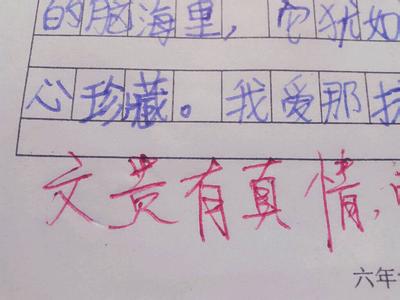 的脑海里，它犹如
心珍藏。我爱那
文贵有真情，
六年